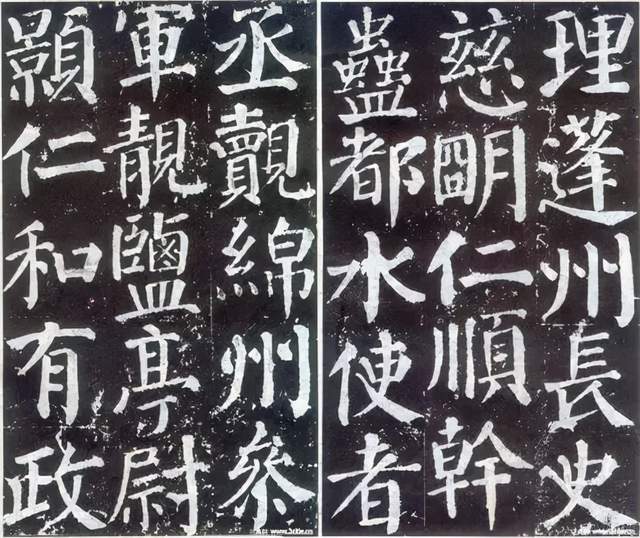 理蓬州長史
慈朙仁順幹
蠱都水使者
丞覿綿州參
軍靚鹽亭尉
顥仁和有政